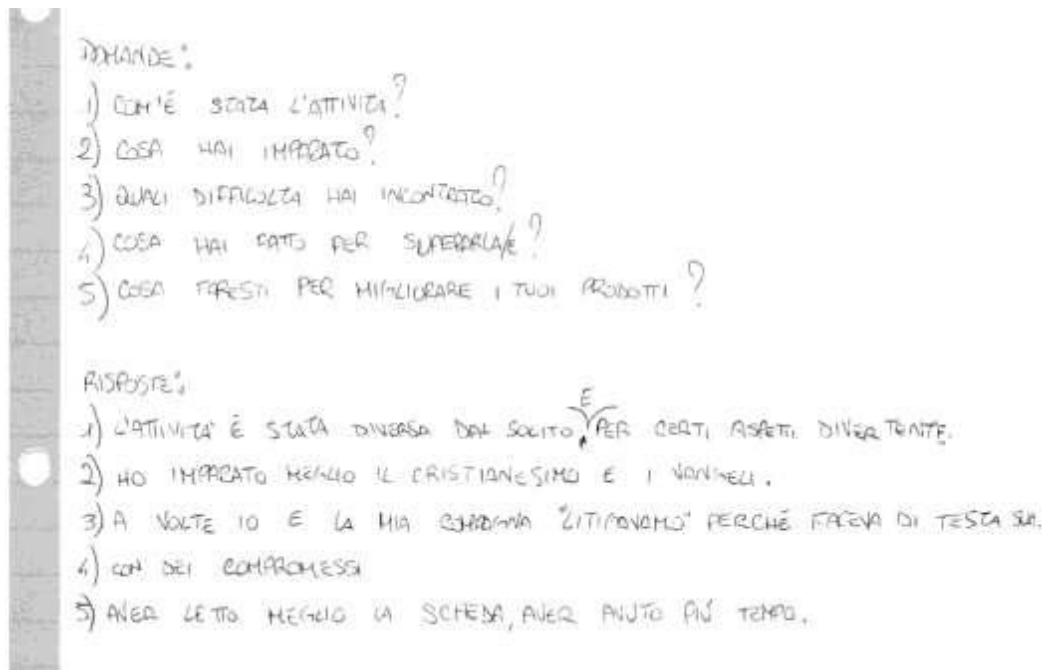 DOMANDE:
1) COM'É STATA L'ATTIVITA?
2) COSA HAI IMPARATO?
3) QUALI DIFFICOLTA HAI INCONTRATO?
4) COSA HAI FATTO PER SUPERARLA/E?
5) COSA FARESTI PER MIGLIORARE I TUOI PRODOTTI?
RISPOSTE:
1) L'ATTIVITA' É STATA DIVERSA DAL SOLITO, E PER CERTI ASPETTI DIVERTENTE.
2) HO IMPARATO MEGLIO IL CRISTIANESIMO E I VANGELI.
3) A VOLTE IO E LA MIA COMPAGNA "LITIGAVAMO" PERCHÉ FACEVA DI TESTA SUA.
4) CON DEI COMPROMESSI
5) AVER LETTO MEGLIO LA SCHEDA, AVER AVUTO PIÚ TEMPO.